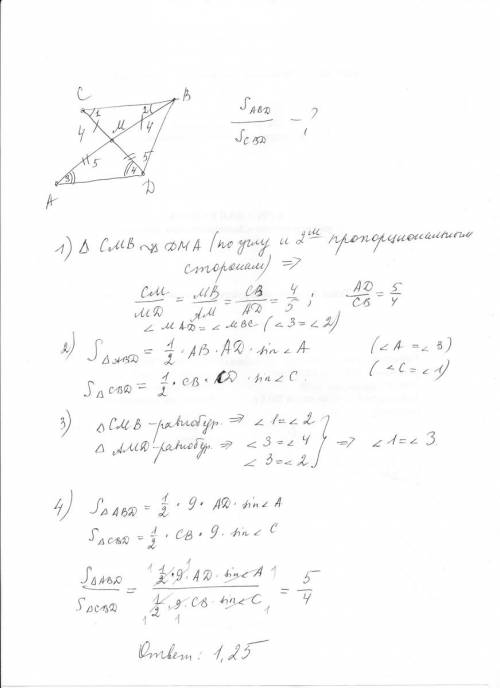 C
1
2
B
4
M
4
5
5
A
3
4
D
S_ABD / S_CBD - ?
1) Δ CMB ∾ Δ DMA (по углу и 2ум пропорциональным
сторонам) ⇒
CM/MD = MB/AM = CB/AD = 4/5 ; AD/CB = 5/4
∠ MAD = ∠ MBC (∠3 = ∠2)
2) S_ΔABD = 1/2 · AB · AD · sin∠A (∠A = ∠3)
S_ΔCBD = 1/2 · CB · CD · sin∠C. (∠C = ∠1)
3) ΔCMB - равнобедр. ⇒ ∠1 = ∠2
ΔAMD - равнобедр. ⇒ ∠3 = ∠4 } ⇒ ∠1 = ∠3.
∠3 = ∠2
4) S_ΔABD = 1/2 · 9 · AD · sin∠A
S_ΔCBD = 1/2 · CB · 9 · sin∠C
S_ΔABD / S_ΔCBD = 1/2 · 9 · AD · sin∠A / 1/2 · 9 · CB · sin∠C = 5/4
Ответ: 1,25